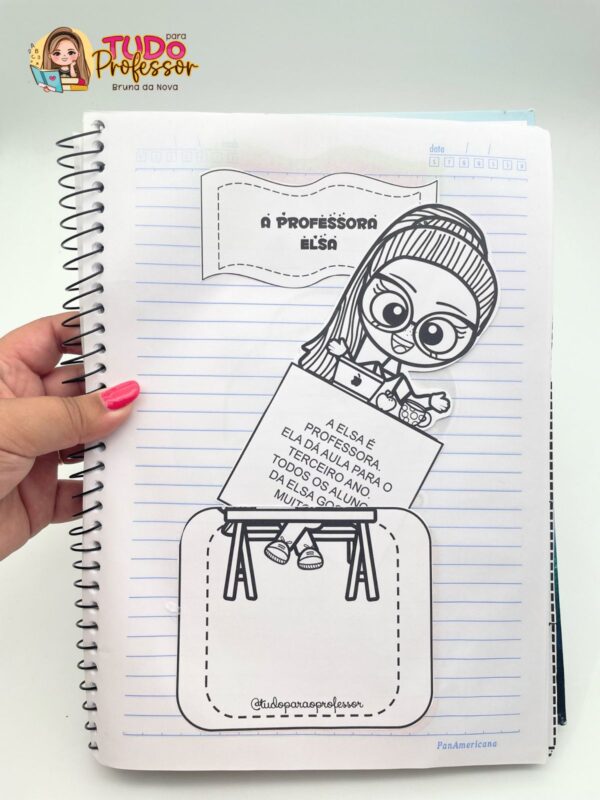 para
TUDO
Professor
Bruna da Nova
data / /
A PROFESSORA
ELSA
A ELSA É
PROFESSORA.
ELA DÁ AULA PARA O
TERCEIRO ANO.
TODOS OS ALUNO
DA ELSA GOS
MUITO
@tudoparaoprofessor
PanAmericana